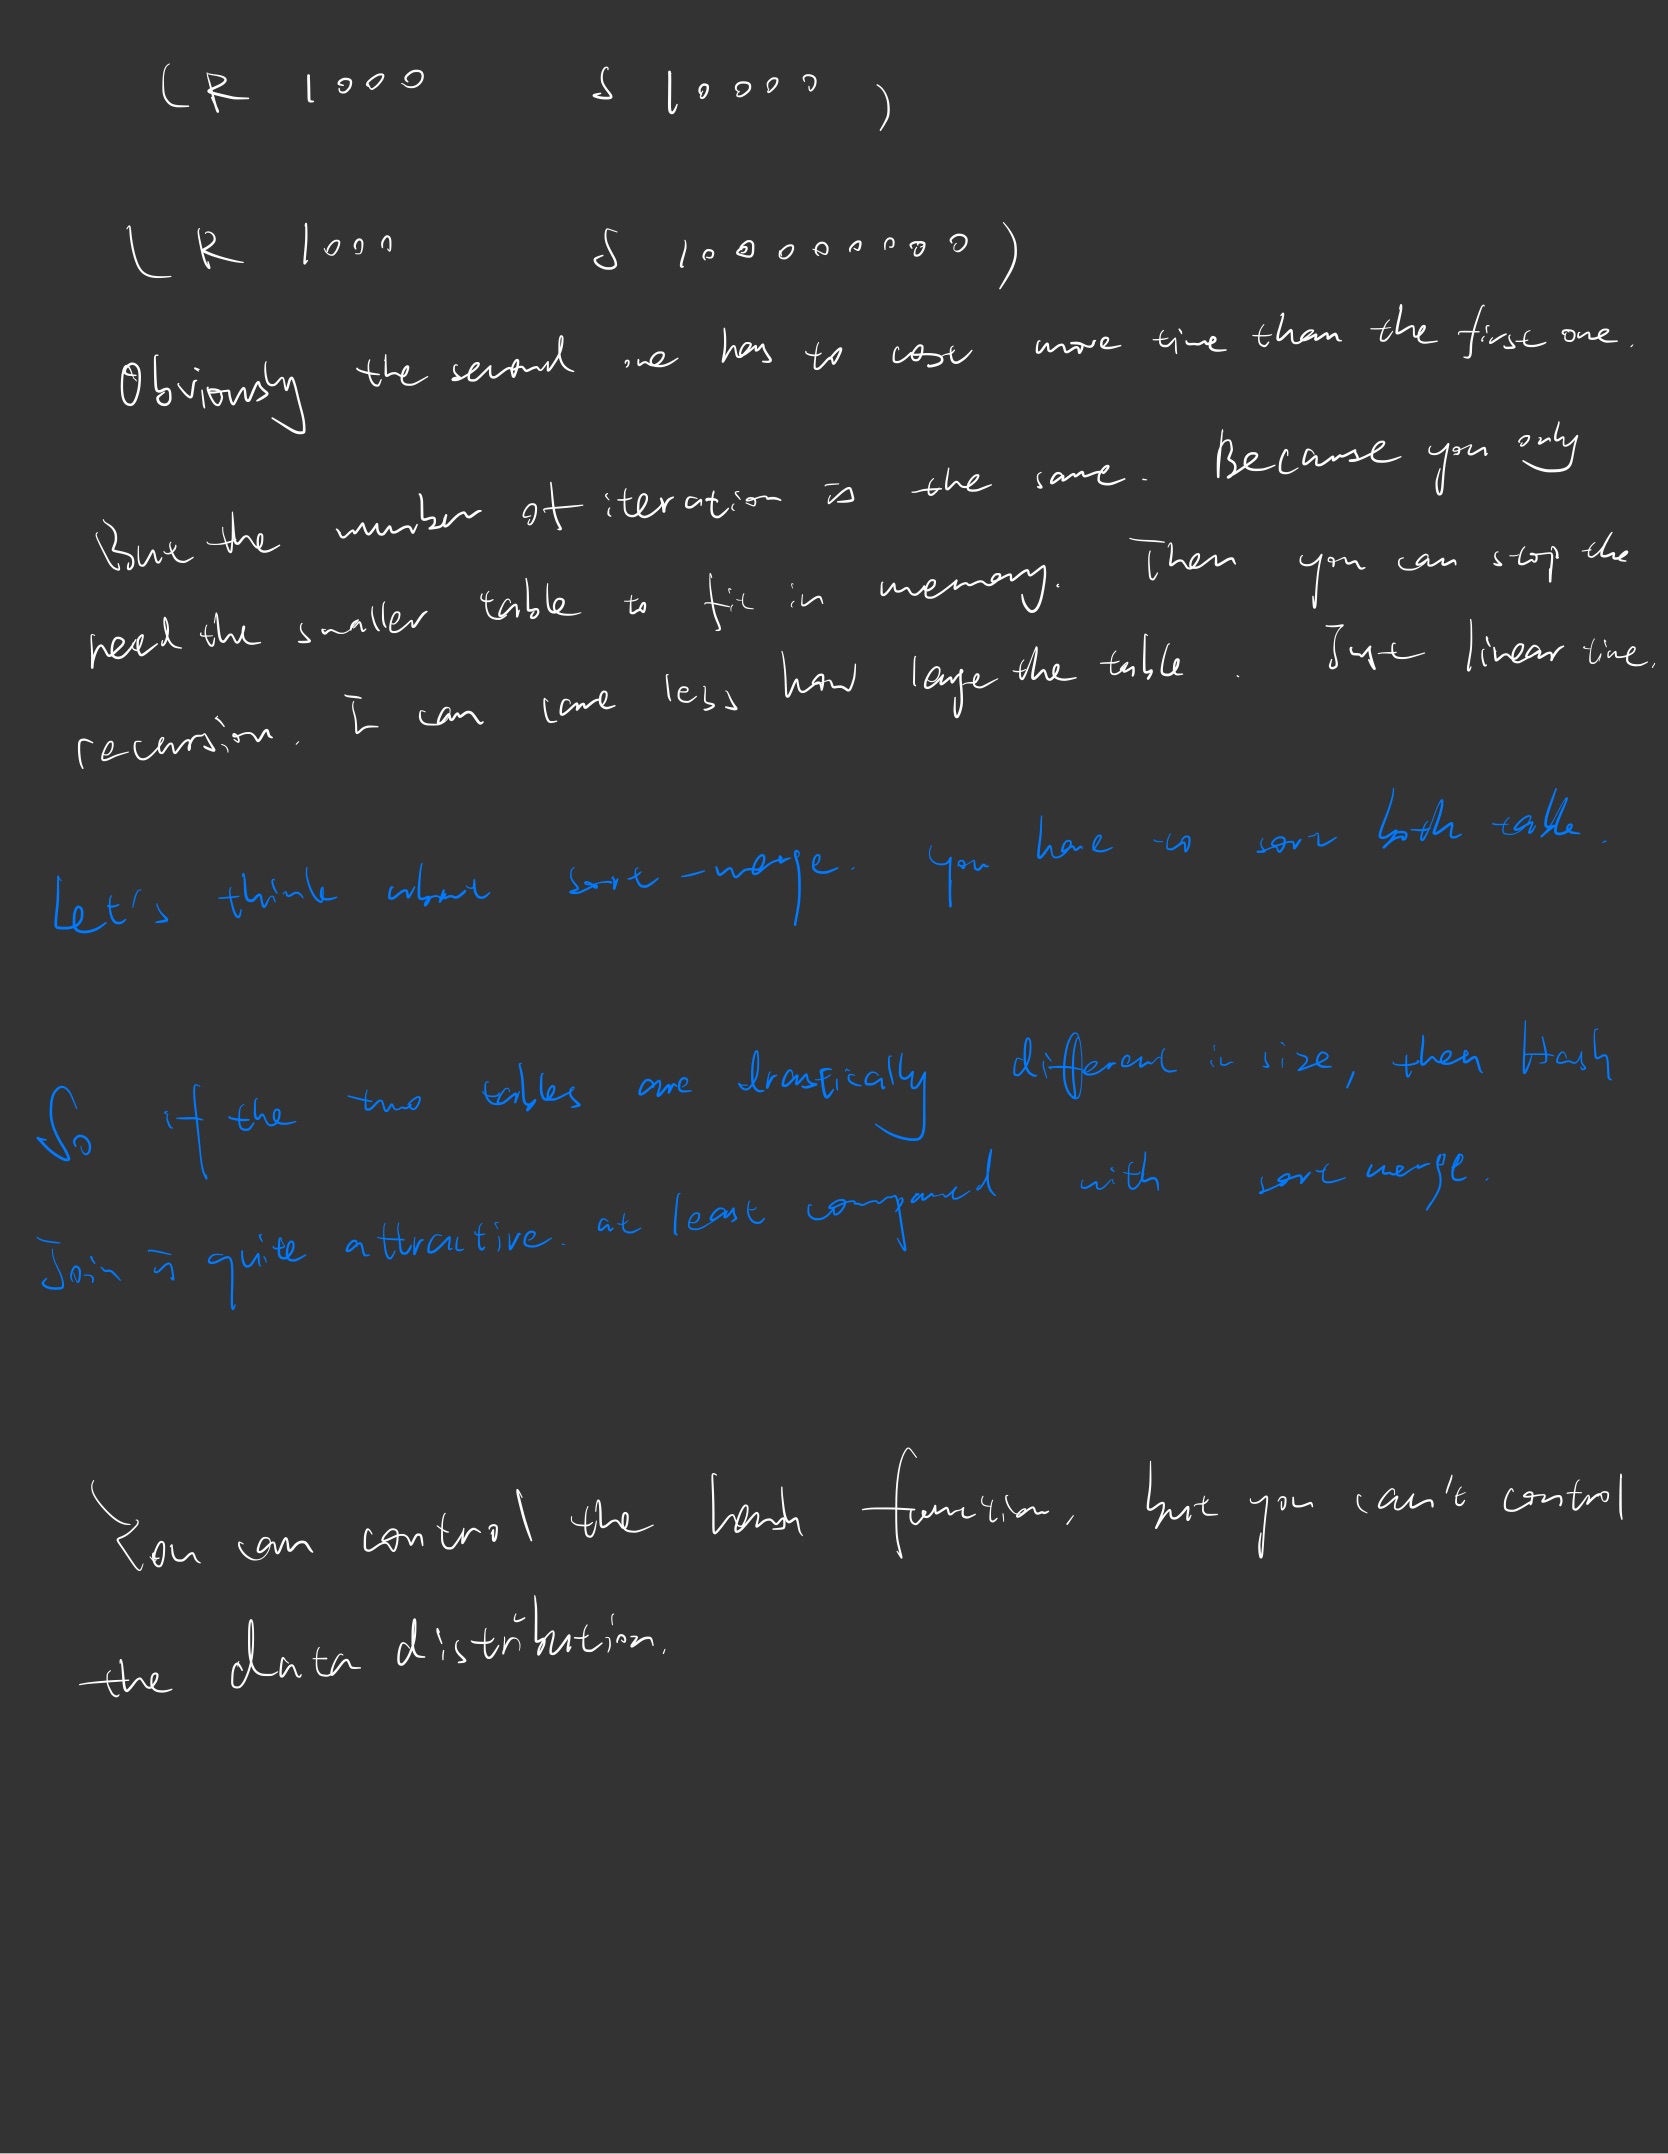 (R 1000 S 10000)
(R 1000 S 1000000000)
Obviously the second one has to cost more time than the first one.
But the number of iteration is the same. Because you only
need the smaller table to fit in memory. Then you can stop the
recursion. I can care less how large the table. Just linear time.
Let's think about sort-merge. You have to sort both table.
So if the two tables are drastically different in size, then Hash
Join is quite attractive. at least compared with sort merge.
You can control the hash function, but you can't control
the data distribution.